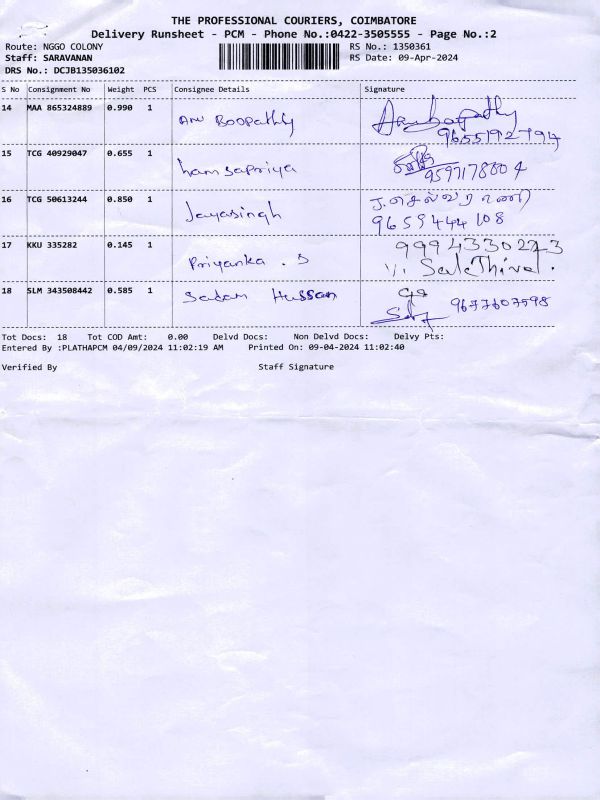 THE PROFESSIONAL COURIERS, COIMBATORE
Delivery Runsheet - PCM - Phone No.:0422-3505555 - Page No.:2
Route: NGGO COLONY RS No.: 1350361
Staff: SARAVANAN RS Date: 09-Apr-2024
DRS No.: DCJB135036102
S No Consignment No Weight PCS Consignee Details Signature
14 MAA 865324889 0.990 1 Anu Boopathy
9655192794
15 TCG 40929047 0.655 1 hamsapriya 9597178804
16 TCG 50613244 0.850 1 Jeyasingh J.செல்வராணி
9659444108
17 KKU 335282 0.145 1 Priyanka . S 9994330273
18 SLM 343508442 0.585 1 Sadam Hussan 9677607598
Tot Docs: 18 Tot COD Amt: 0.00 Delvd Docs: Non Delvd Docs: Delvy Pts:
Entered By :PLATHAPCM 04/09/2024 11:02:19 AM Printed On: 09-04-2024 11:02:40
Verified By Staff Signature